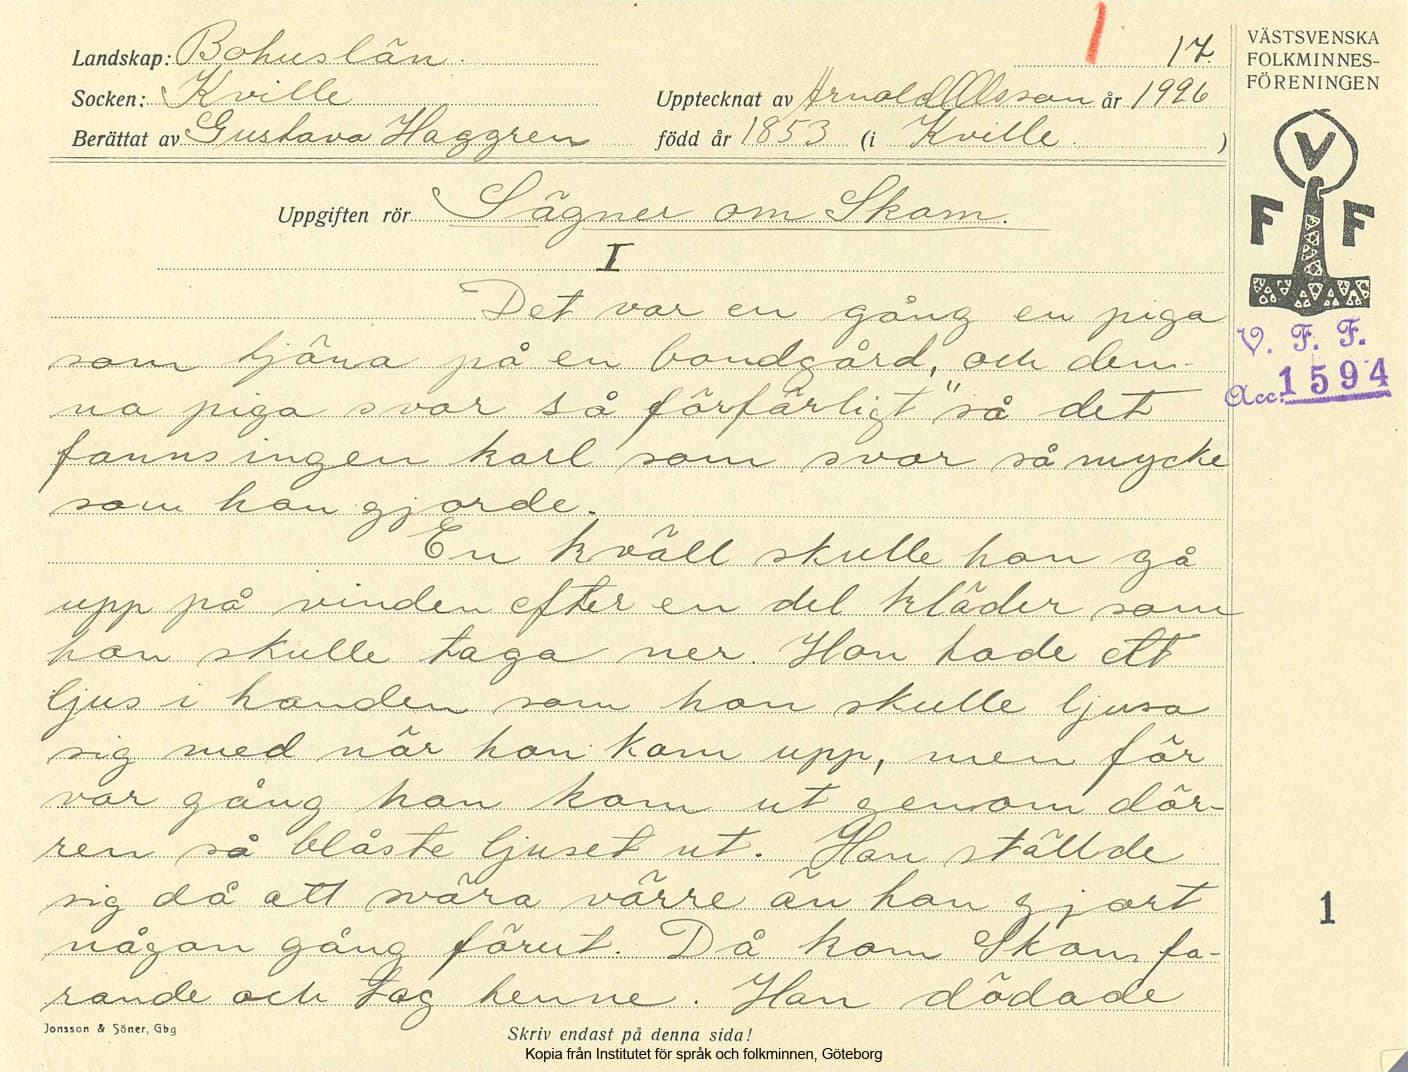 Landskap: Bohuslän.
17.
Socken: Kville
Upptecknat av Arnold Olsson år 1926
Berättat av Gustava Haggren
född år 1853 (i Kville. )
Uppgiften rör Sägner om Skam.
I
Det var en gång en piga
som tjäna på en bondgård, och den-
na piga svor så förfärligt "så det
fanns ingen karl som svor så mycke
som hon gjorde.
En kväll skulle hon gå
upp på vinden efter en del kläder som
hon skulle taga ner. Hon hade ett
ljus i handen som hon skulle ljusa
sig med när hon kom upp, men för
var gång hon kom ut genom dör-
ren så blåste ljuset ut. Hon ställde
sig då att svära värre än hon gjort
någon gång förut. Då kom Skam fa-
rande och tog henne. Han dödade
Jonsson & Söner, Gbg
Skriv endast på denna sida!
Kopia från Institutet för språk och folkminnen, Göteborg
VÄSTSVENSKA
FOLKMINNES-
FÖRENINGEN
V
F F
V. F. F.
Acc. 1594
1